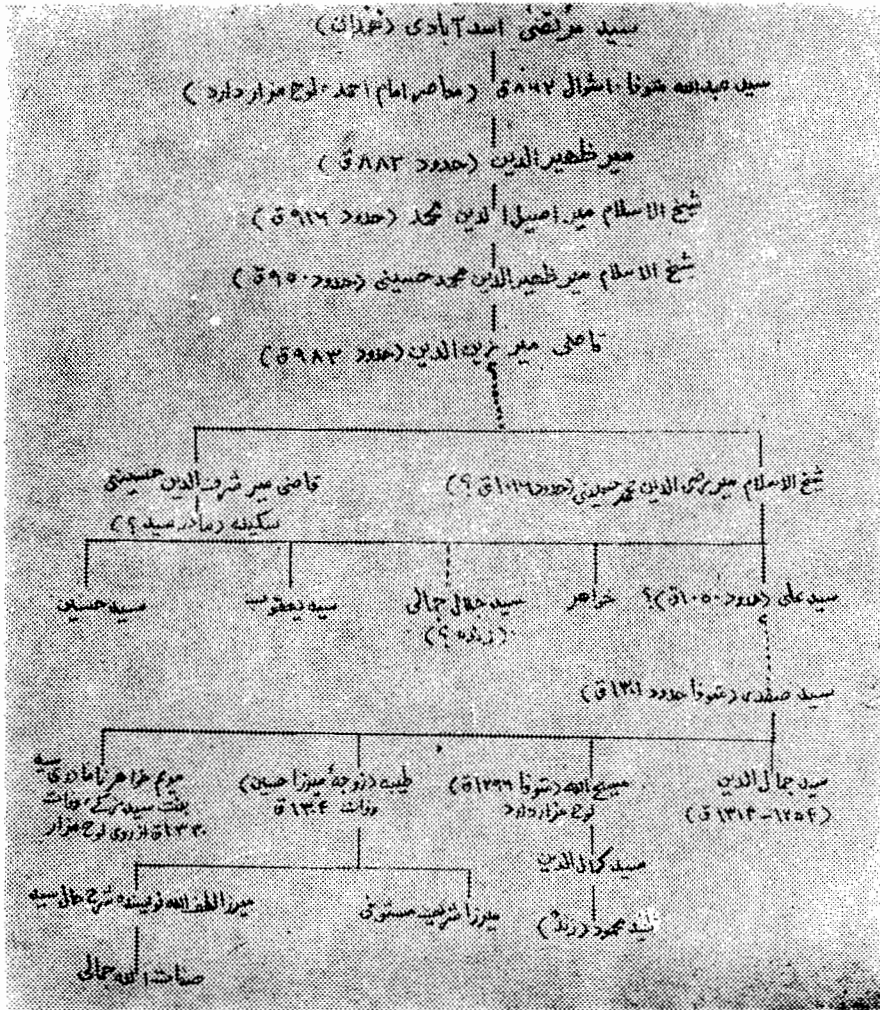 سید مرتضی اسدآبادی (همدان)
سید عبدالله متوفا ۱۰ شوال ۸۶۲ق (معاصر امام احمد - لوح مزار دارد)
میر ظهیرالدین (حدود ۸۸۲ق)
شیخ الاسلام میر اصیل الدین محمد (حدود ۹۱۶ق)
شیخ الاسلام میر ظهیرالدین محمد حسینی (حدود ۹۵۰ق)
قاضی میر زین الدین (حدود ۹۸۳ق)
شیخ الاسلام میر رضی الدین محمد حسینی (حدود ۱۰۱۶ق ؟)
قاضی میر شرف الدین حسینی
سکینه (مادر سید ؟)
سید علی (حدود ۱۰۵۰ق) ؟
خواهر
سید جلال جمالی
(زنده ؟)
سید یعقوب
سید حسین
سید صفدری (متوفا حدود ۱۳۰۱ق)
سید جمال الدین
(۱۲۵۴-۱۳۱۴ق)
مسیح الله (متوفا ۱۲۹۶ق)
لوح مزار دارد
طیبه (زوجهٔ میرزا حسین)
وفات ۱۳۰۴ق
مریم خواهر نامادری سید
بنت سید وفات
۱۳۳۰ق از روی لوح مزار
سید کمال الدین
سید محمود (زنده)
میرزا شریف مستوفی
میرزا لطف الله نویسنده شرح حال سید
صفات الله جمالی